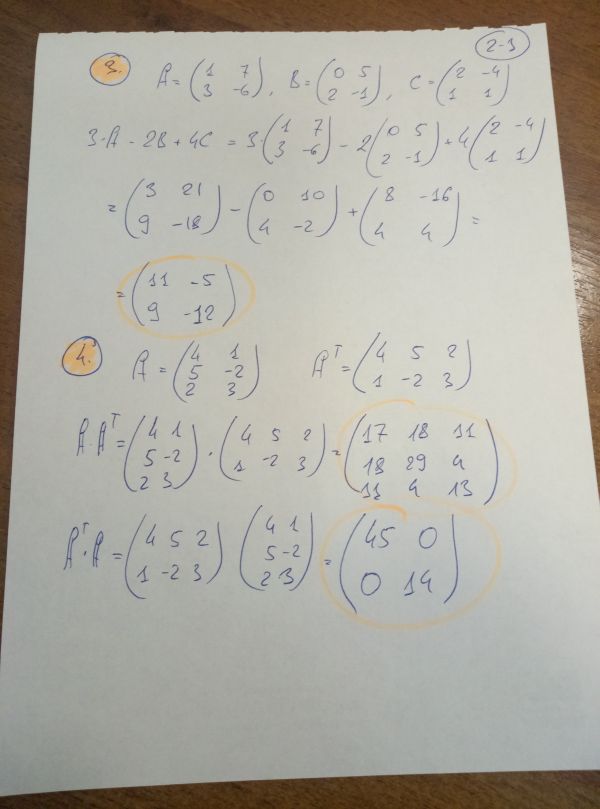 2-3
3. A = (1 7 3 -6), B = (0 5 2 -1), C = (2 -4 1 1)
3·A - 2B + 4C = 3·(1 7 3 -6) - 2(0 5 2 -1) + 4(2 -4 1 1)
= (3 21 9 -18) - (0 10 4 -2) + (8 -16 4 4) =
= (11 -5 9 -12)
4. A = (4 1 5 -2 2 3) Aᵀ = (4 5 2 1 -2 3)
A·Aᵀ = (4 1 5 -2 2 3) · (4 5 2 1 -2 3) = (17 18 11 18 29 4 11 4 13)
Aᵀ·A = (4 5 2 1 -2 3) (4 1 5 -2 2 3) = (45 0 0 14)